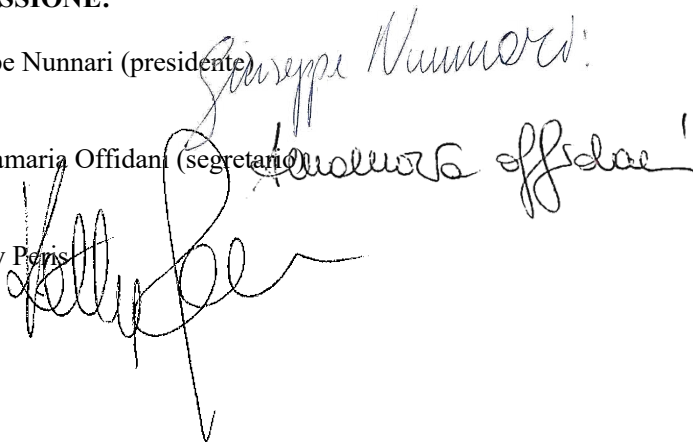 SSIONE:
pe Nunnari (presidente) Giuseppe Nunnari
amaria Offidani (segretario) Annamaria Offidani
y Peris Ketty Peris